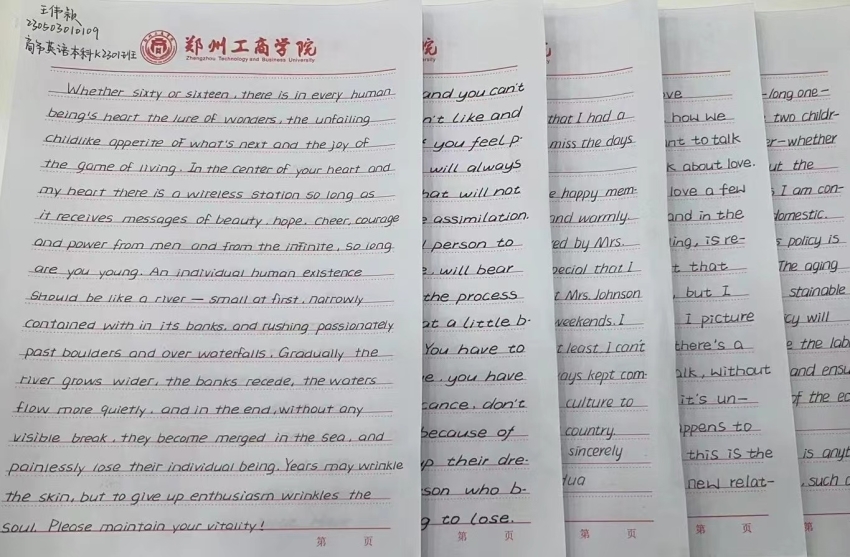 王伟颖
230503010109
商务英语本科K2301班
郑州工商学院
Zhengzhou Technology and Business University
Whether sixty or sixteen, there is in every human
being's heart the lure of wonders, the unfailing
childlike appetite of what's next and the joy of
the game of living. In the center of your heart and
my heart there is a wireless station so long as
it receives messages of beauty, hope, cheer, courage
and power from men and from the infinite, so long
are you young. An individual human existence
should be like a river — small at first, narrowly
contained with in its banks, and rushing passionately
past boulders and over waterfalls. Gradually the
river grows wider, the banks recede, the waters
flow more quietly, and in the end, without any
visible break, they become merged in the sea, and
painlessly lose their individual being. Years may wrinkle
the skin, but to give up enthusiasm wrinkles the
soul. Please maintain your vitality!
第 页
院
and you can't
n't like and
you feel p-
will always
hat will not
assimilation.
person to
will bear
the process
at a little b-
You have to
e, you have
cance, don't
because of
up their dre-
son who b-
g to lose.
第 页
that I had a
miss the days
e happy mem-
and warmly
ed by Mrs.
pecial that I
t Mrs. Johnson
weekends. I
t least, I can't
ays kept com-
culture to
country.
sincerely
Hua
第 页
ve
how we
nt to talk
k about love.
love a few
and in the
ing, is re-
t that
, but I
I picture
there's a
alk, without
it's un-
appens to
this is the
new relat-
第 页
-long one-
two childr-
er-whether
ut the
I am con-
domestic.
s policy is
The aging
stainable
cy will
e the lab
and ensu
of the ec
is anyt
, such a
第